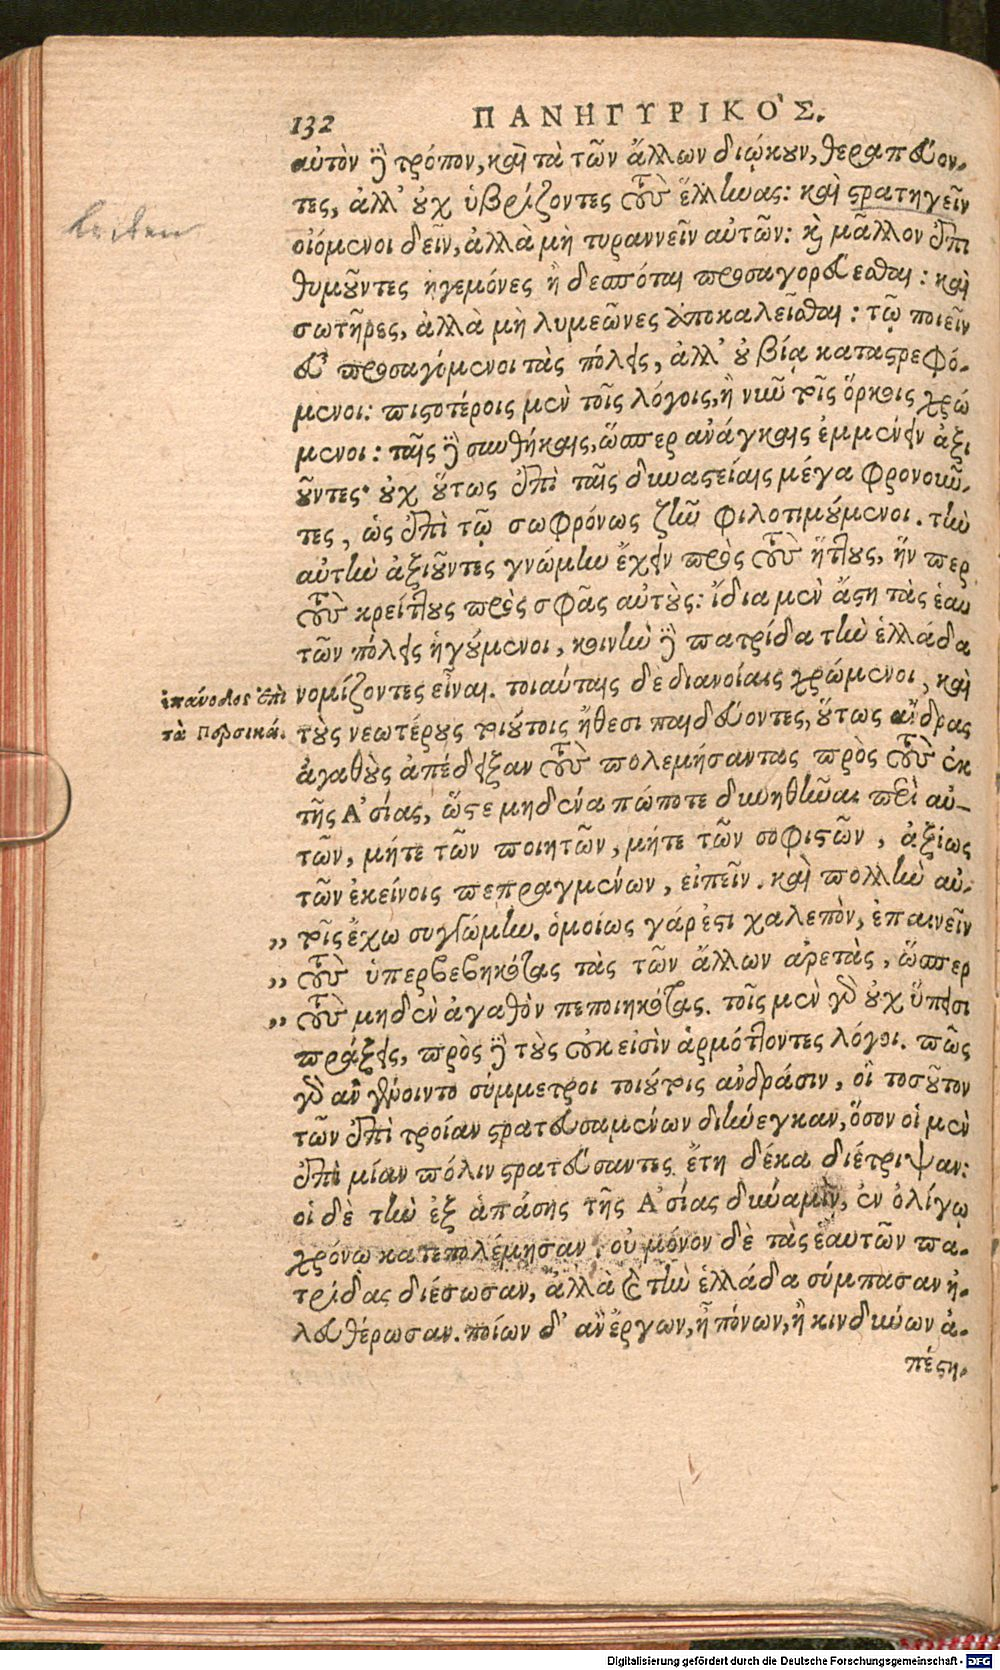 132 ΠΑΝΗΓΥΡΙΚΟ'Σ.
αὐτὸν δὲ τρόπον, καὶ τὰ τῶν ἄλλων διῴκουν, θεραπεύον-
τες, ἀλλ' οὐχ ὑβρίζοντες τοὺς ἕλληνας: καὶ στρατηγεῖν
οἰόμενοι δεῖν, ἀλλὰ μὴ τυραννεῖν αὐτῶν: καὶ μᾶλλον ἐπι
θυμοῦντες ἡγεμόνες ἢ δεσπόται προσαγορεύεσθαι: καὶ
σωτῆρες, ἀλλὰ μὴ λυμεῶνες ἀποκαλεῖσθαι: τῷ ποιεῖν
εὖ προσαγόμενοι τὰς πόλεις, ἀλλ' οὐ βίᾳ καταστρεφό-
μενοι: πιστοτέροις μὲν τοῖς λόγοις, ἢ νῦν τοῖς ὅρκοις χρώ
μενοι: ταῖς δὲ συνθήκαις, ὥσπερ ἀνάγκαις ἐμμένειν ἀξι
οῦντες· οὐχ οὕτως ἐπὶ ταῖς δυναστείαις μέγα φρονοῦν-
τες, ὡς ἐπὶ τῷ σωφρόνως ζῆν φιλοτιμούμενοι. τὴν
αὐτὴν ἀξιοῦντες γνώμην ἔχειν πρὸς τοὺς ἥττους, ἥν περ
τοὺς κρείττους πρὸς σφᾶς αὐτούς: ἴδια μὲν ἄστη τὰς ἑαυ
τῶν πόλεις ἡγούμενοι, κοινὴν δὲ πατρίδα τὴν ἑλλάδα
ἐπάνοδος ἐπὶ νομίζοντες εἶναι. τοιαύταις δὲ διανοίαις χρώμενοι, καὶ
τὰ Περσικά. τοὺς νεωτέρους τοιούτοις ἤθεσι παιδεύοντες, οὕτως ἄνδρας
ἀγαθοὺς ἀπέδειξαν τοὺς πολεμήσαντας πρὸς τοὺς ἐκ
τῆς Ἀσίας, ὥστε μηδένα πώποτε δυνηθῆναι περὶ αὐ-
τῶν, μήτε τῶν ποιητῶν, μήτε τῶν σοφιστῶν, ἀξίως
τῶν ἐκείνοις πεπραγμένων, εἰπεῖν. καὶ πολλὴν αὐ-
„ τοῖς ἔχω συγνώμην. ὁμοίως γάρ ἐστι χαλεπὸν, ἐπαινεῖν
„ τοὺς ὑπερβεβηκότας τὰς τῶν ἄλλων ἀρετὰς, ὥσπερ
„ τοὺς μηδὲν ἀγαθὸν πεποιηκότας. τοῖς μὲν γὰρ οὐχ ὕπεισι
πράξεις, πρὸς δὲ τοὺς οὐκ εἰσὶν ἁρμόττοντες λόγοι. πῶς
γὰρ ἂν γένοιντο σύμμετροι τοιούτοις ἀνδράσιν, οἳ τοσοῦτον
τῶν ἐπὶ τροίαν στρατευσαμένων διήνεγκαν, ὅσον οἱ μὲν
ἐπὶ μίαν πόλιν στρατεύσαντες ἔτη δέκα διέτριψαν:
οἱ δὲ τὴν ἐξ ἁπάσης τῆς Ἀσίας δύναμιν, ἐν ὀλίγῳ
χρόνῳ κατεπολέμησαν. οὐ μόνον δὲ τὰς ἑαυτῶν πα-
τρίδας διέσωσαν, ἀλλὰ καὶ τὴν ἑλλάδα σύμπασαν ἠ-
λευθέρωσαν. ποίων δ' ἂν ἔργων, ἢ πόνων, ἢ κινδύνων ἀ-
πέστη.
Digitalisierung gefördert durch die Deutsche Forschungsgemeinschaft - DFG